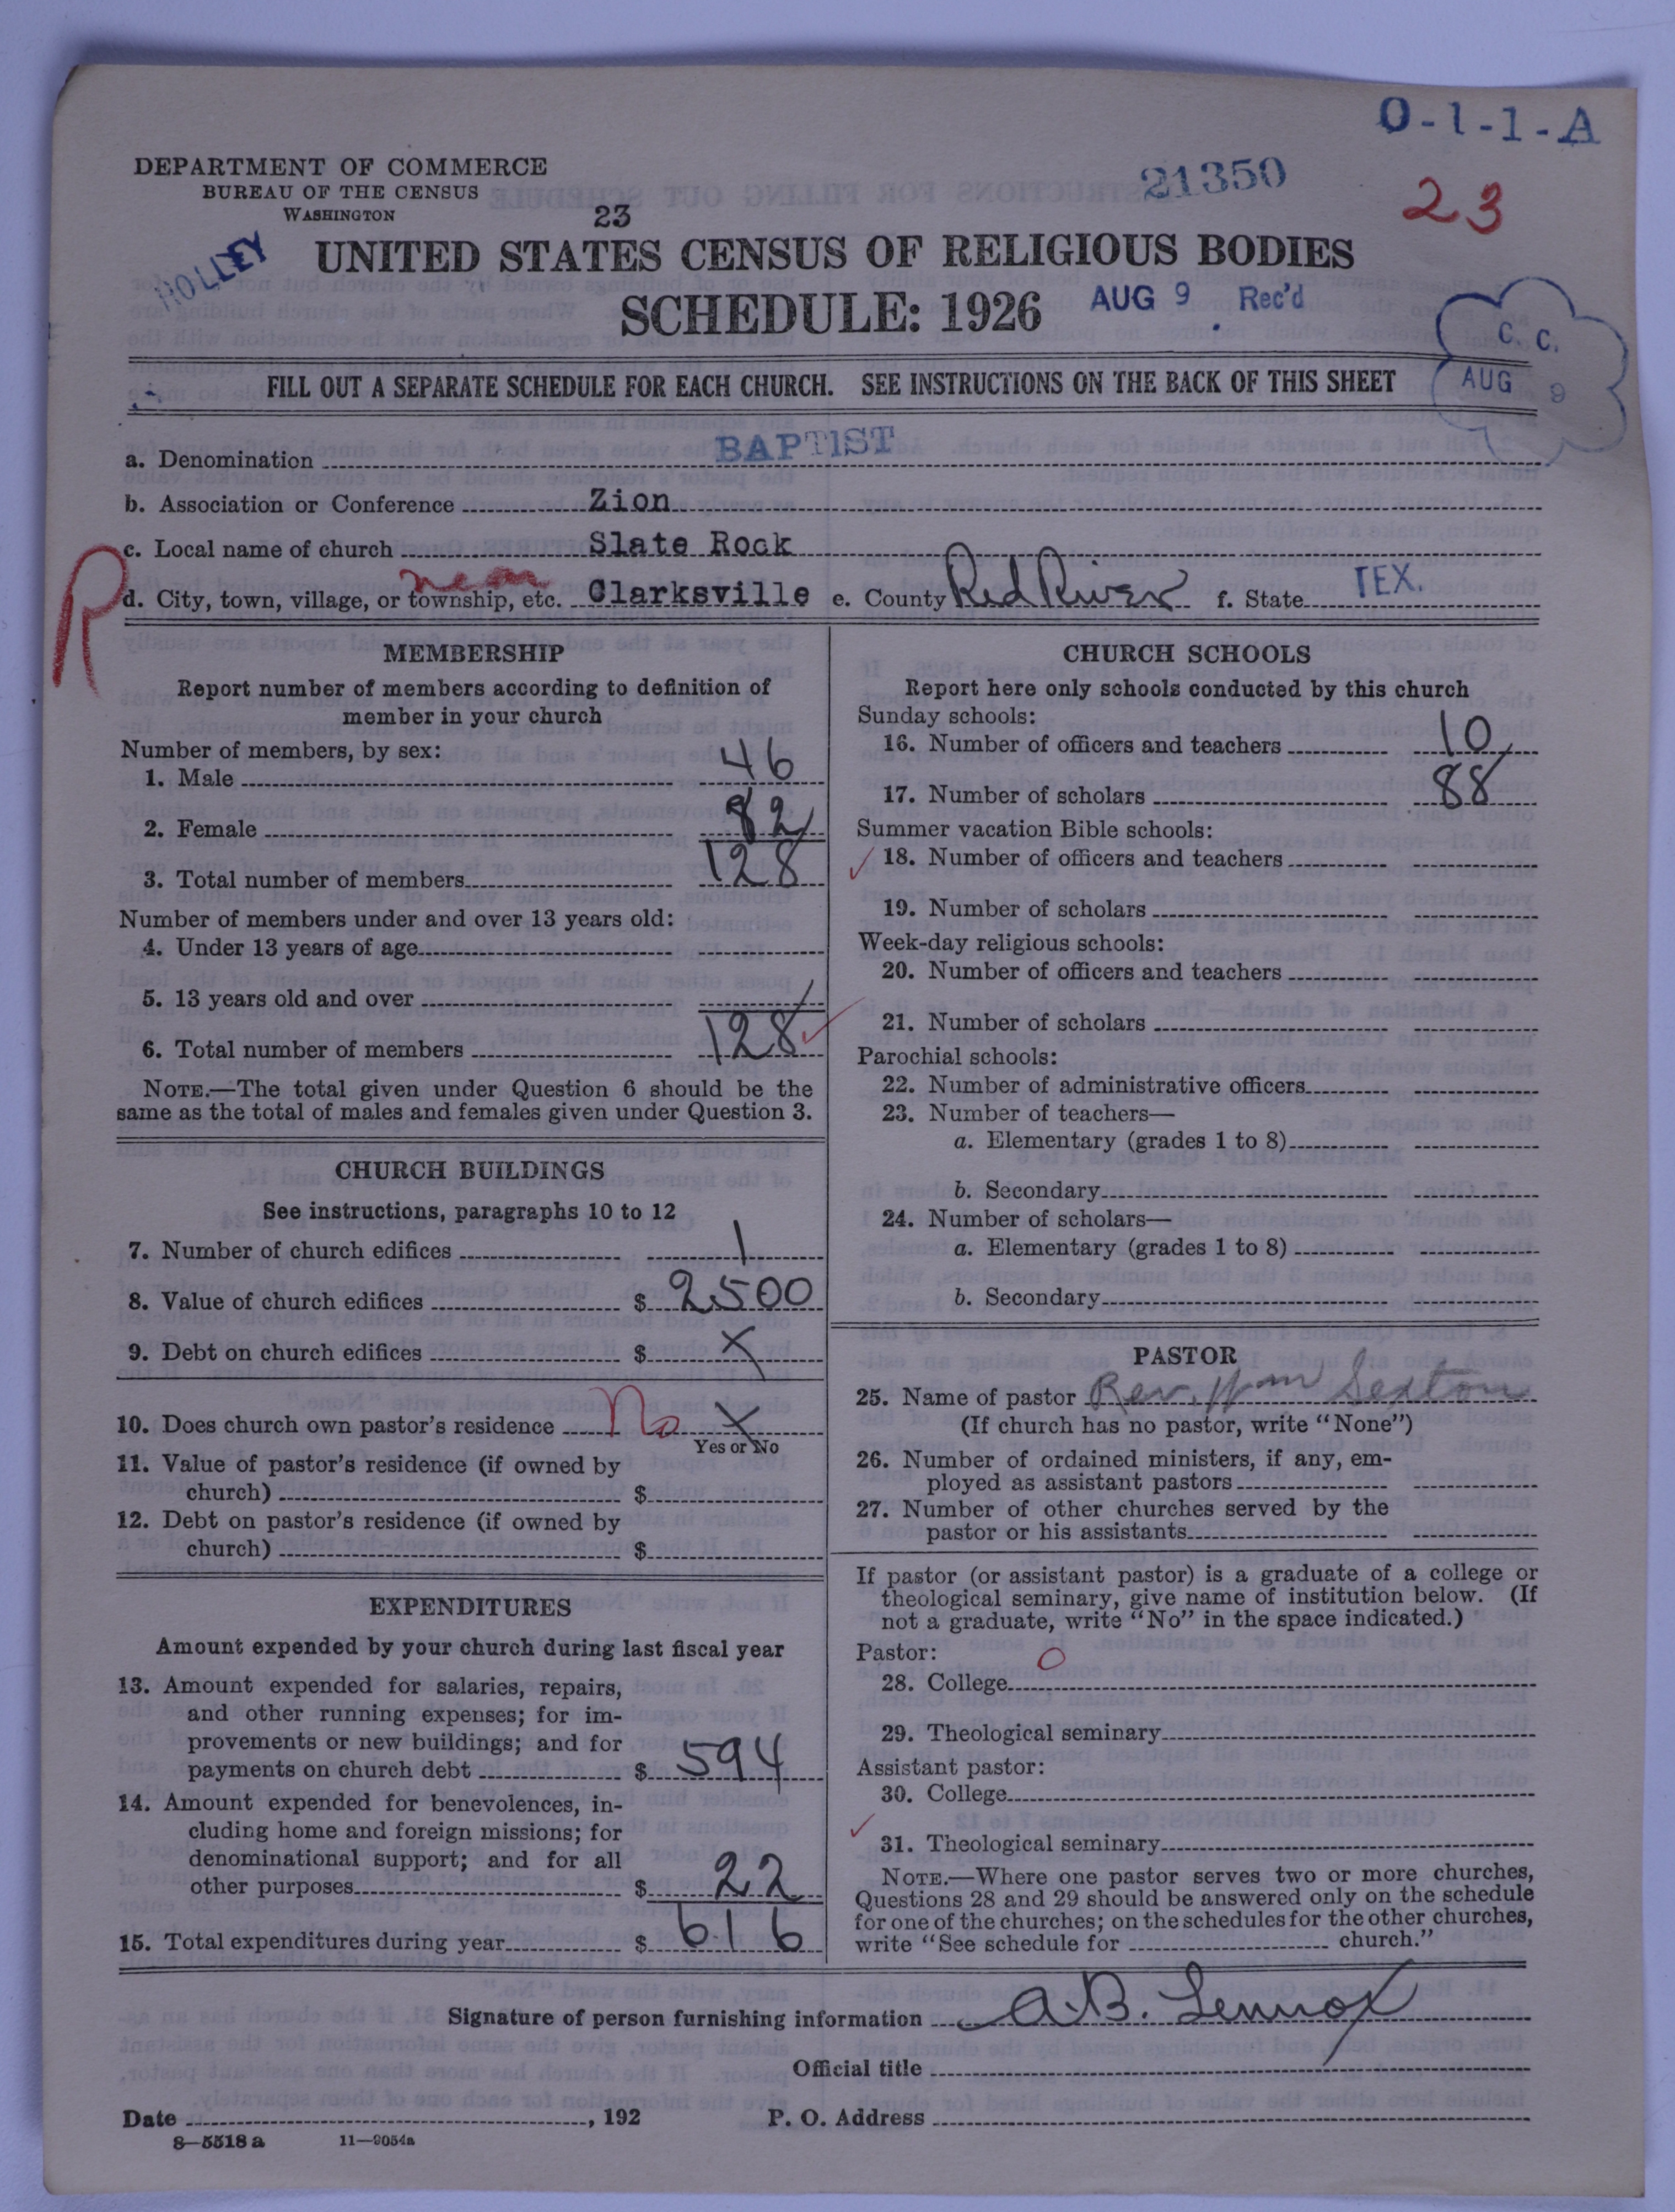 O-1-1-A
DEPARTMENT OF COMMERCE
BUREAU OF THE CENSUS
WASHINGTON
21350
23
23
HOLLEY
UNITED STATES CENSUS OF RELIGIOUS BODIES
SCHEDULE: 1926
AUG 9 Rec'd
C. C.
AUG 9
FILL OUT A SEPARATE SCHEDULE FOR EACH CHURCH. SEE INSTRUCTIONS ON THE BACK OF THIS SHEET
a. Denomination BAPTIST
b. Association or Conference Zion
c. Local name of church Slate Rock
R
near
d. City, town, village, or township, etc. Clarksville e. County Red River f. State TEX.
MEMBERSHIP
Report number of members according to definition of
member in your church
Number of members, by sex:
1. Male 46
2. Female 82
3. Total number of members 128
Number of members under and over 13 years old:
4. Under 13 years of age
5. 13 years old and over
6. Total number of members 128
NOTE.—The total given under Question 6 should be the
same as the total of males and females given under Question 3.
CHURCH BUILDINGS
See instructions, paragraphs 10 to 12
7. Number of church edifices 1
8. Value of church edifices $ 2500
9. Debt on church edifices $ X
10. Does church own pastor's residence No X
Yes or No
11. Value of pastor's residence (if owned by
church) $
12. Debt on pastor's residence (if owned by
church) $
EXPENDITURES
Amount expended by your church during last fiscal year
13. Amount expended for salaries, repairs,
and other running expenses; for im-
provements or new buildings; and for
payments on church debt $ 594
14. Amount expended for benevolences, in-
cluding home and foreign missions; for
denominational support; and for all
other purposes $ 22
15. Total expenditures during year $ 616
CHURCH SCHOOLS
Report here only schools conducted by this church
Sunday schools:
16. Number of officers and teachers 10
17. Number of scholars 88
Summer vacation Bible schools:
18. Number of officers and teachers
19. Number of scholars
Week-day religious schools:
20. Number of officers and teachers
21. Number of scholars
Parochial schools:
22. Number of administrative officers
23. Number of teachers—
a. Elementary (grades 1 to 8)
b. Secondary
24. Number of scholars—
a. Elementary (grades 1 to 8)
b. Secondary
PASTOR
25. Name of pastor Rev. Wm Sexton
(If church has no pastor, write "None")
26. Number of ordained ministers, if any, em-
ployed as assistant pastors
27. Number of other churches served by the
pastor or his assistants
If pastor (or assistant pastor) is a graduate of a college or
theological seminary, give name of institution below. (If
not a graduate, write "No" in the space indicated.)
Pastor: 0
28. College
29. Theological seminary
Assistant pastor:
30. College
31. Theological seminary
NOTE.—Where one pastor serves two or more churches,
Questions 28 and 29 should be answered only on the schedule
for one of the churches; on the schedules for the other churches,
write "See schedule for church."
Signature of person furnishing information A.B. Lennox
Official title
Date , 192 P. O. Address
8—5518 a 11—9054a